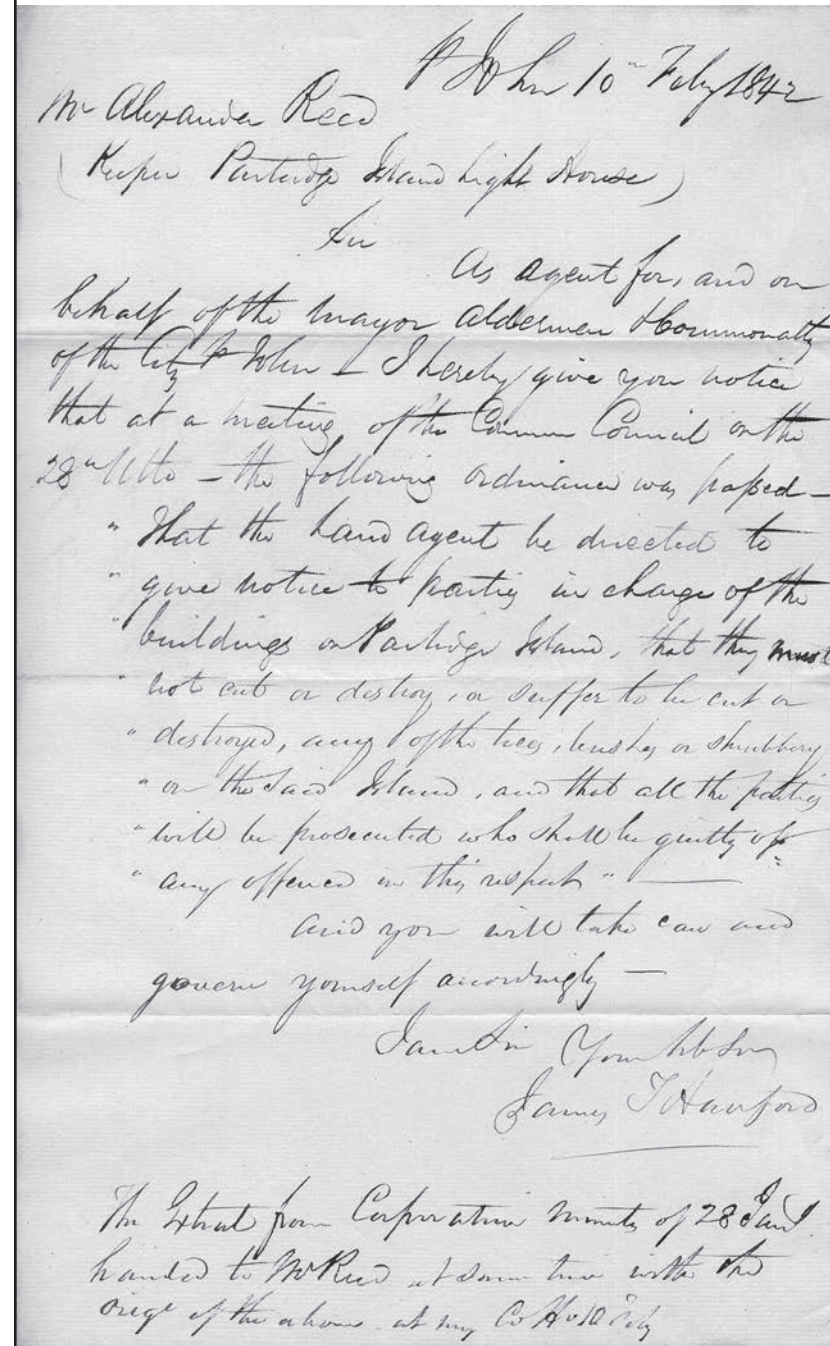 St John 10th Feby 1842
Mr Alexander Reed
(Keeper Partridge Island Light House)
Sir
As agent for, and on
behalf of the Mayor Aldermen & Commonalty
of the City St John – I hereby give you notice
that at a meeting of the Common Council on the
28th Ulto – the following ordinance was passed –
" That the Land agent be directed to
" give notice to parties in charge of the
" buildings on Partridge Island, that they must
" not cut or destroy, or suffer to be cut or
" destroyed, any of the trees, bushes or shrubbery
" on the said Island, and that all the parties
" will be prosecuted who shall be guilty of
" any offence in this respect " —
and you will take care and
govern yourself accordingly —
I am Sir Your Ob Sr
James T Hanford
The Extract from Corporation Minutes of 28 Jany
handed to Mr Reed at same time with the
orig of the above at my 10 Feby